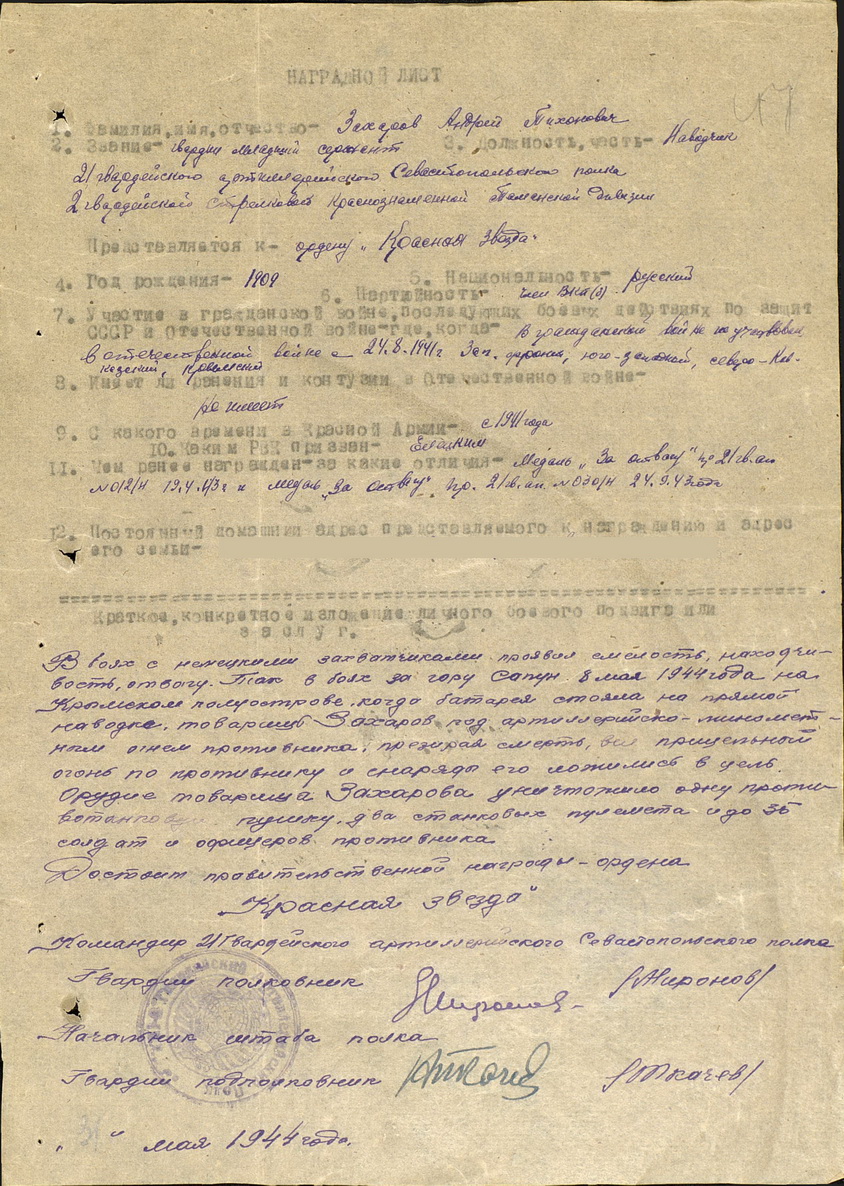 НАГРАДНОЙ ЛИСТ
1. Фамилия, имя, отчество- Захаров Андрей Тихонович
2. Звание- гвардии младший сержант 3. Должность, часть- Наводчик
21 гвардейского артиллерийского Севастопольского полка
2 гвардейской стрелковой Краснознаменной Таманской дивизии
Представляется к- ордену „Красная звезда"
4. Год рождения- 1909 5. Национальность- русский
6. Партийность- член ВКП(б)
7. Участие в гражданской войне, последующих боевых действиях по защит
СССР и Отечественной войне-где, когда- В гражданской войне не участвовал
В отечественной войне с 24.8.1941г Зап. фронт, юго-западной, северо-Кав-
казский, Крымский
8. Имеет ли ранения и контузии в Отечественной войне-
Не имеет
9. С какого времени в Красной Армии- с 1941 года
10. Каким РВК призван-
11. Чем ранее награжден-за какие отличия- Медаль „За отвагу" пр 21 гв. ап
№ 012/н 19.4.43г и медаль „За отвагу" пр. 21 гв. ап. № 030/н 24.9.43 года
12. Постоянный домашний адрес представляемого к награждению и адрес
его семьи-
Краткое, конкретное изложение личного боевого подвига или
заслуг.
В боях с немецкими захватчиками проявил смелость, находчи-
вость, отвагу. Так в боях за гору Сапун 8 мая 1944 года на
Крымском полуострове, когда батарея стояла на прямой
наводке, товарищ Захаров под артиллерийско-миномет-
ным огнем противника, презирая смерть, вел прицельный
огонь по противнику и снаряды его ложились в цель.
Орудие товарища Захарова уничтожило одну проти-
вотанковую пушку, два станковых пулемета и до 35
солдат и офицеров противника.
Достоин правительственной награды-ордена
„Красная звезда"
Командир 21 Гвардейского артиллерийского Севастопольского полка
Гвардии полковник /Миронов/
Начальник штаба полка
Гвардии подполковник /Ткачев/
„31" мая 1944 года.